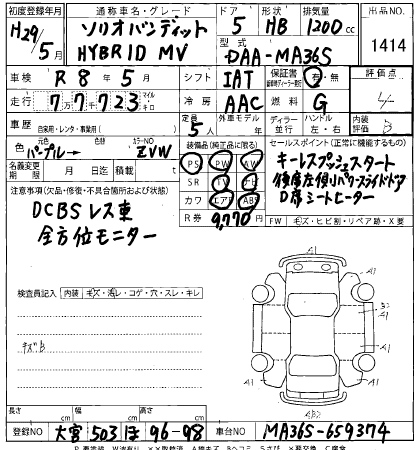 初度登録年月 通称車名・グレード ドア 形状 排気量 出品NO
H29/5月 ソリオバンディット HYBRID MV 5 HB 1200cc 1414
型式 DAA-MA36S
車検 R8年5月 シフト IAT 保証書 有・無 評価点
走行 77,723 キロ マイル 冷房 AAC 燃料 G 4
車歴 自家用・レンタ・事業用( ) 定員 5人 外車モデル ディーラー 並行 ハンドル 左・右 内装 B
色 元色 パープル→ 色替 カラーNO ZVW
装備品(純正品に限る) セールスポイント(正常に機能するもの)
PS PW AW
SR TV ナビ
カワ エアB ABS
キーレスプッシュスタート
後席左側パワースライドドア
D席シートヒーター
名義変更期限 月 日 書類有効期限 月 日
R券 9,770
FW キズ・ヒビ割・リペア跡・X要
注意事項(欠品・修復・不具合箇所および状態)
DCBSレス車
全方位モニター
検査員記入 内装 キズ・汚レ・コゲ・穴・スレ・キレ
キズB
A1
A1
A1
A1
長さ cm 幅 cm 高さ cm
登録NO 大宮 503 ほ 96-98 車台NO MA36S-659374